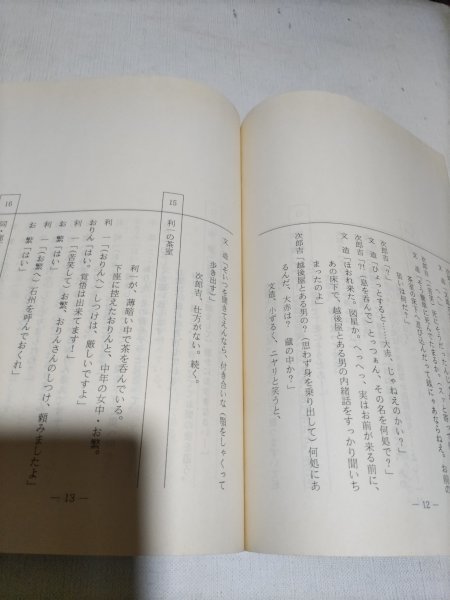 次郎吉「?」
文 造「ひょっとすると……大赤、じゃねえのかい?」
次郎吉「!?(息を呑んで)とっつぁん、その名を何処で?」
文 造「ほおれ来た。図星か。へっへっ、実はお前が来る前に、
あの床下で、越後屋とある男の内緒話をすっかり聞いち
まったのよ」
次郎吉「越後屋とある男の?(思わず身を乗り出して)何処にあ
るんだ、大赤は? 蔵の中か?」
文造、小ずるく、ニヤリと笑うと、
— 12 —
文 造「そいつを聞きてえんなら、付き合いな(顎をしゃくって
歩き出す」
次郎吉、仕方がない。続く。
15 利一の茶室
利一が、薄暗い中で茶を呑んでいる。
下座に控えたおりんと、中年の女中・お繁。
利 一「(おりんへ)しつけは、厳しいですよ」
おりん「はい。覚悟は出来てます!」
利 一「(苦笑して)お繁、おりんさんのしつけ、頼みましたよ」
お 繁「はい」
利 一「(お繁へ)石州を呼んでおくれ」
お 繁「はい」
16
— 13 —